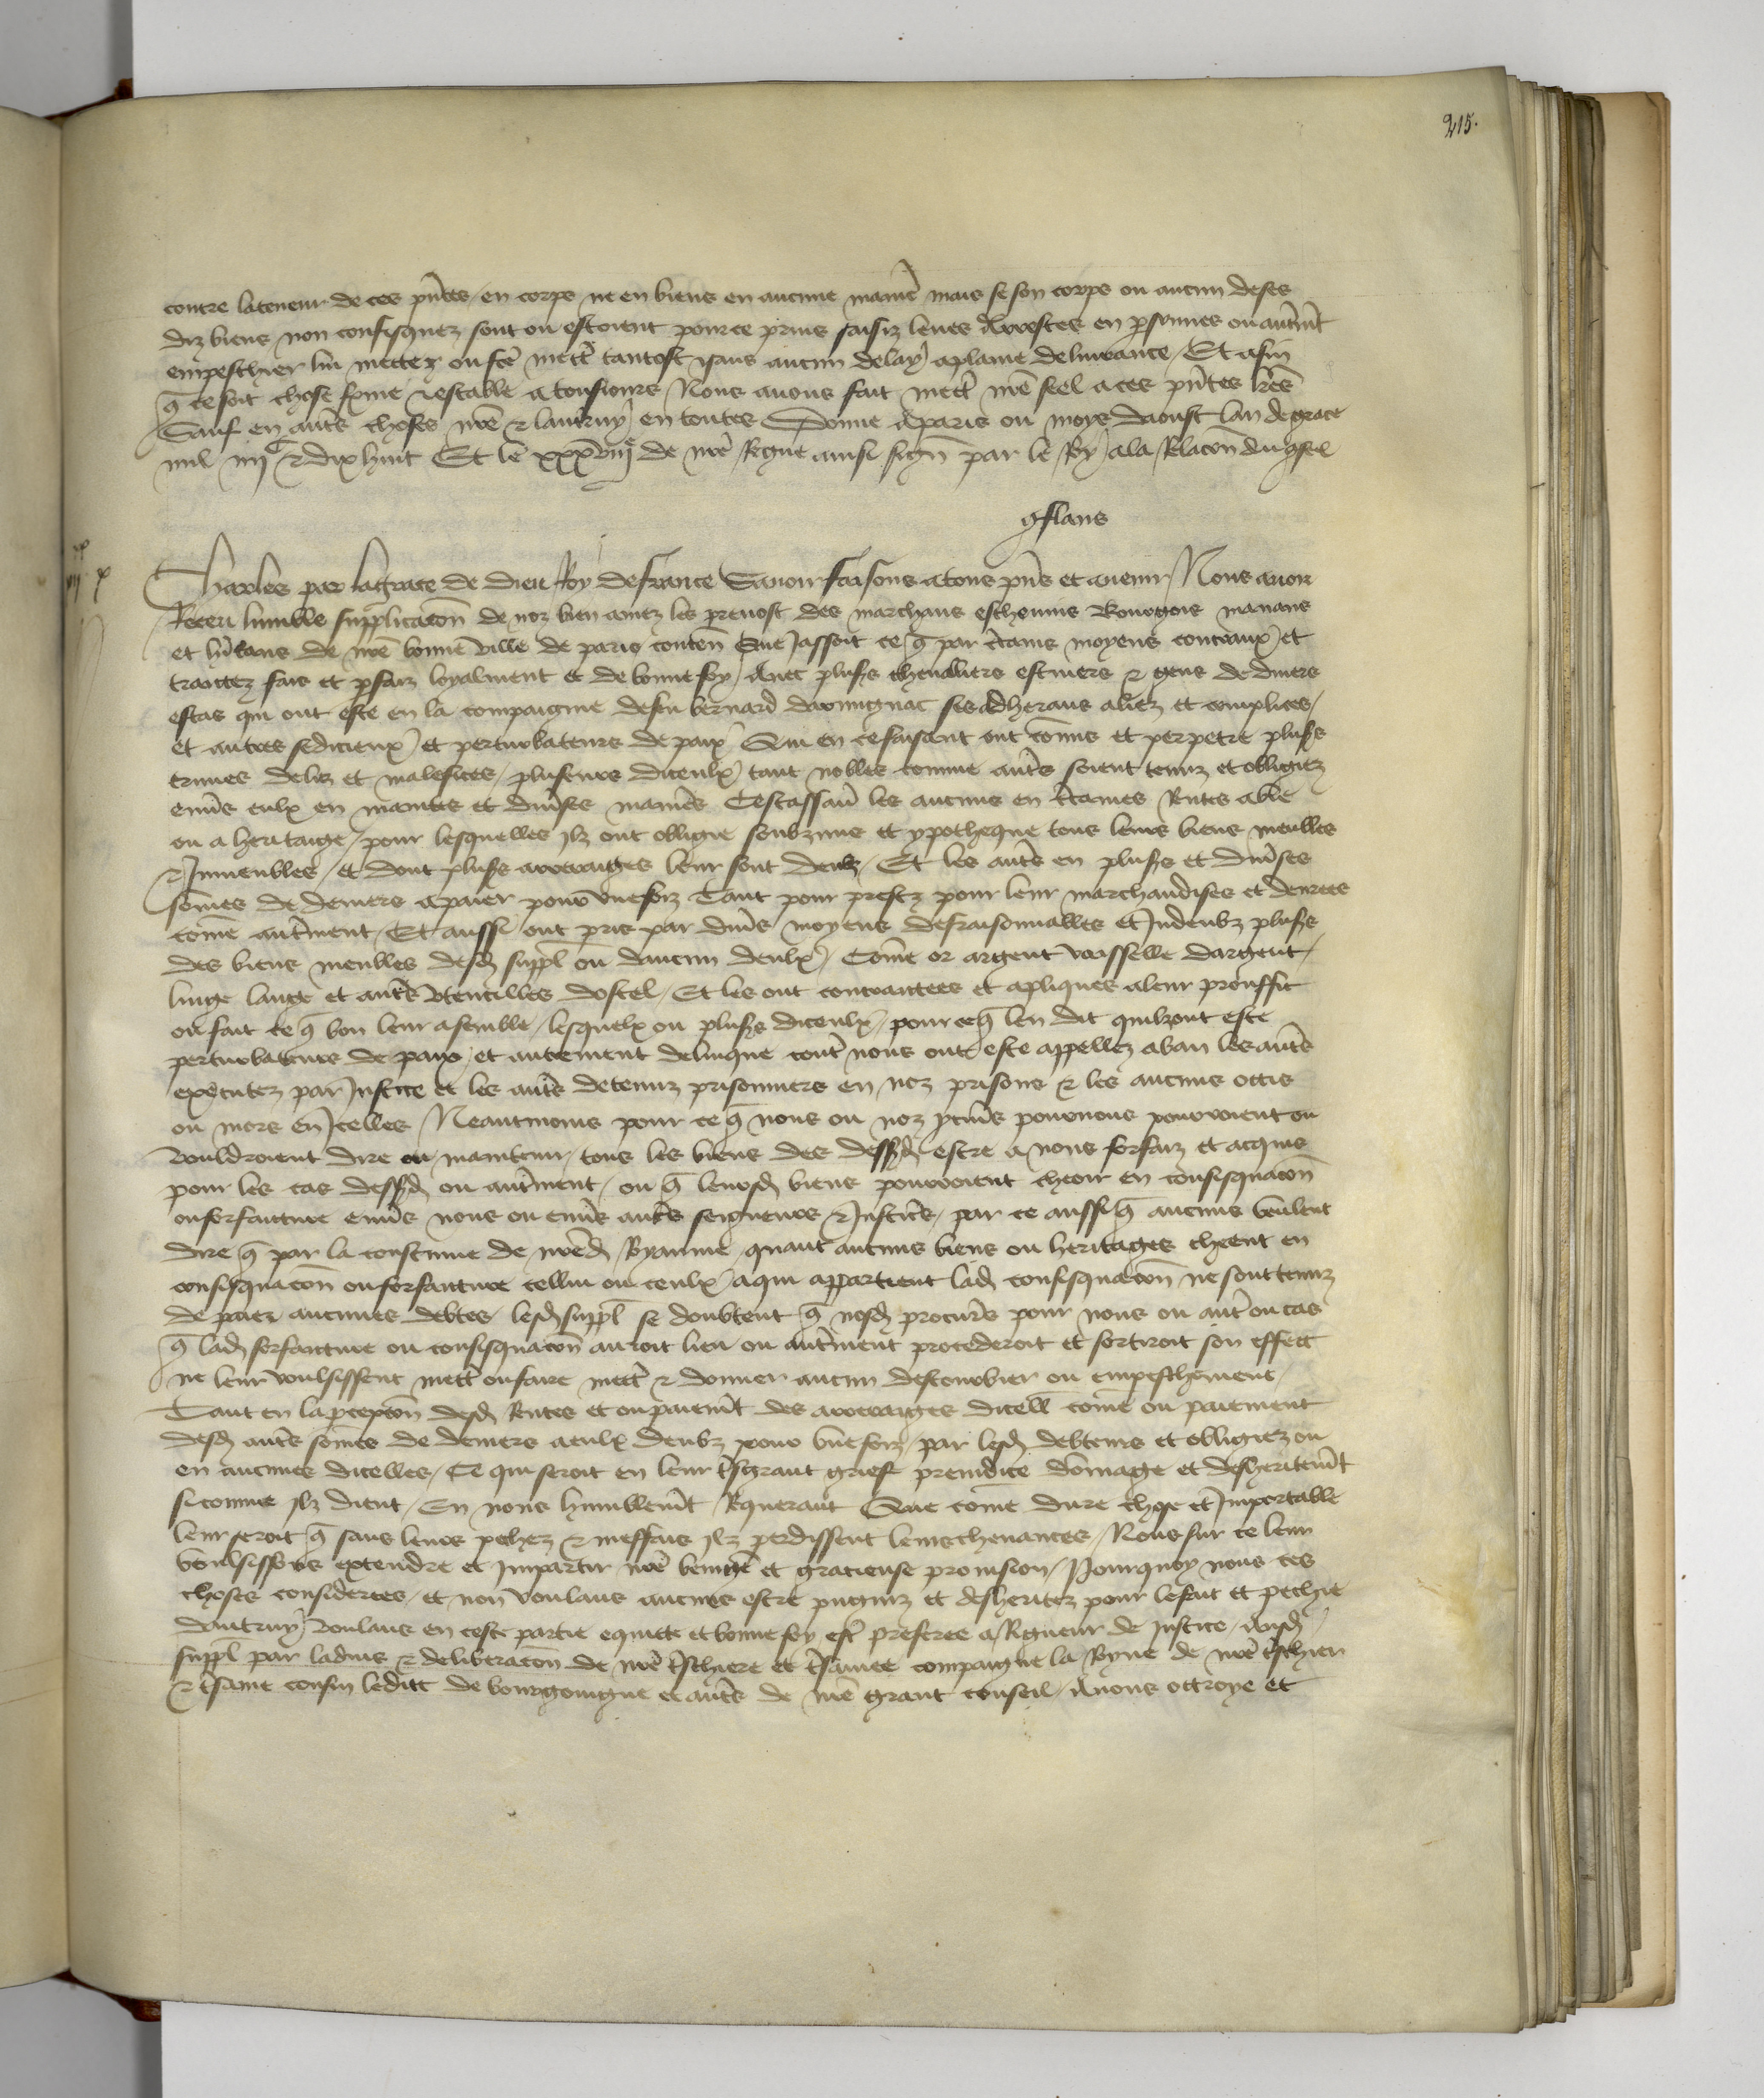 215.
contre la teneur de ces pñtes en corps ne en biens en aucune manie mais se son corps ou aucun de ses
diz biens non confisquez sont ou estoient pource prins saisiz levez arrestes en psonnes ou autremt
empeschier lui mettez ou fce mettre tantost sans aucun delay a plaine delivrance Et afin
q ce soit chose ferme et estable a tousiours Nous avons fait mettre nre seel a ces pñtes lres
Sauf en autres choses nre droit et lautruy en toutes Donne a paris ou moys daoust lan de grace
mil iiiic et dix huit Et le xxxviiie de nre Regne ainsi signe par le Roy a la Relacon du gseil
gflans
Charles par la grace de dieu Roy de france Savoir faisons a tous pñs et avenir Nous avons
Receu lumble supplicacon de noz bien amez les prevost des marchans eschevins Bourgois manans
et hitans de nre bonne ville de paris conten Que Jassoit ce q par ctains moyens contraux et
traictez fais et psaiz loyalment et de bonne foy avec pluss chevaliers escuiers et gens de divers
estas qui ont este en la compaignie de feu bernard darmignac ses adherans aliez et complices
et autres sedicieux et perturbateurs de paix Qui en ce faisant ont comis et perpetre pluss
crimes deliz et malefices pluseurs diceulx tant nobles comme autres soient tenuz et obligiez
envs eulx en maintes et divses manies Cestassavr les aucuns en ctaines Rentes a vie
ou a heritaige pour lesquelles ilz ont obligie soubzmis et ypotheque tous leurs biens meubles
et Inmeubles et dont pluss arreraiges leur sont deubz Et les autres en pluss et divses
somes de deniers a paier pour une foiz Tant pour prestz pour leur marchandises et denrees
come autrement Et aussi ont pris par divs moyens desraisonnables et Indeubz pluss
des biens meubles desd suppl ou daucun deulx Come or argent vaisselle dargent
linge lange et autres utencilles dostel Et les ont contractees et apliques a leur prouffit
ou fait ce q bon leur a semble lesquelx ou pluss diceulx pource q len dit quilz ont este
perturbateurs de paix et autrement delinque contre nous ont este appellez a ban les autres
executez par Justice et les autres detenuz prisonniers en noz prisons et les aucuns occis
ou mors en Icelles Neantmoins pour ce q nous ou noz pcurs pourrions pourroient ou
vouldroient dire ou maintenir tous les biens des dessusd estre a nous forfaiz et acquis
pour les cas dessusd ou autrement ou q leursd biens pourroient cheoir en confisquacon
ou forfaiture envs nous ou envs autres seigneurs et Justices par ce aussi q aucuns veulent
dire q par la coustume de nred Royaume quant aucuns biens ou heritages cheent en
confisquacon ou forfaiture cellui ou ceulx a qui appartient lad confisquacon ne sont tenuz
de paier aucunes debtes lesd suppl se doubtent q nosd procurs pour nous ou autre ou cas
q lad forfaicture ou confisquacon auroit lieu ou autrement procederoit et sortiroit son effect
ne leur voulsissent mettre ou faire mettre et donner aucun destourbier ou empeschement
Tant en la percepcon desd Rentes et ou paiemt des arreraiges dicell come ou paiement
desd autres somes de deniers a eulx deubz pour une foiz par lesd debteurs et obligiez ou
en aucunes dicelles Ce qui seroit en leur tsgrant grief preiudice domage et desheritemt
si comme ilz dient En nous humblemt Requerant Que come dure chose et Importable
leur seroit q sans leurs pechez et meffais ilz perdissent leurs chevances Nous sur ce leur
voulsissions extendre et impartir nre benigne et gracieuse provision Pourquoy nous ces
choses considerees et non voulans aucuns estre pugniz et desheritez pour le fait et pechie
dautruy Voulans en ceste partie equite et bonne foy estre preferee a Rigueur de justice Ausd
suppl par ladvis et deliberacon de nre tschiere et tsamee compaigne la Royne de nre tschier
et tsame cousin le duc de bourgoingne et autres de nre grant conseil Avons ottroye et